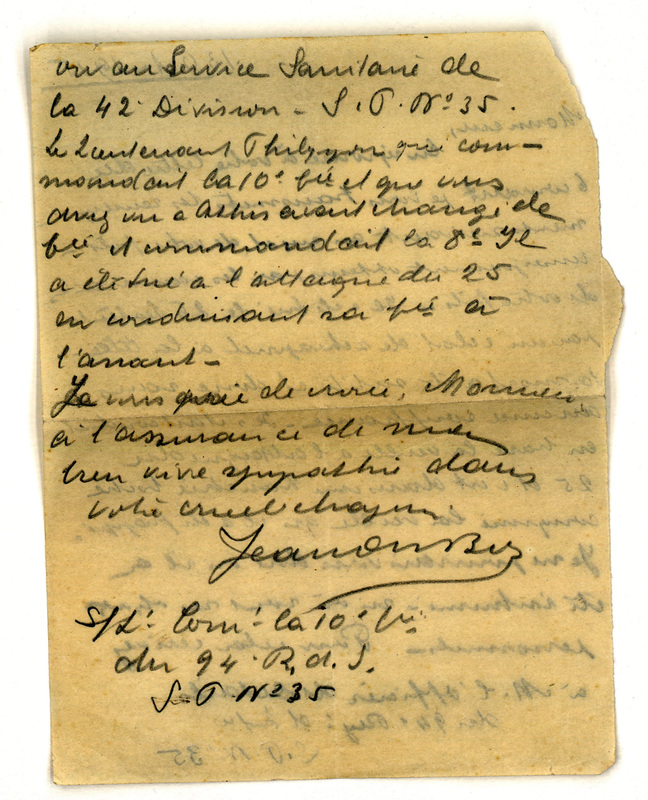 ou au Service Sanitaire de
la 42e Division - S. P. No 35.
Le Lieutenant qui com-
mandait la 10e Cie et que vous
avez vu a Athis avait changé de
Cie et commandait la 8e Il
a été tué a l'attaque du 25
en conduisant sa Cie à
l'assaut -
Je vous prie de croire, Monsieur
à l'assurance de ma
bien vive sympathie dans
votre cruel chagrin
S/Lt Comt la 10e Cie
du 94 R. d. I.
S. P. No 35